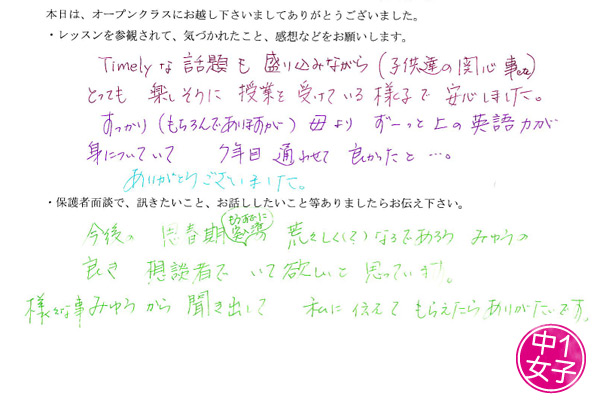 本日は、オープンクラスにお越し下さいましてありがとうございました。
・レッスンを参観されて、気づかれたこと、感想などをお願いします。
Timelyな話題も盛り込みながら(子供達の関心事
とっても楽しそうに授業を受けている様子で安心しました。
すっかり(もちろんでありますが)母よりずーっと上の英語力が
身についていて 7年目通わせて良かったと…。
ありがとうございました。
・保護者面談で、訊きたいこと、お話ししたいこと等ありましたらお伝え下さい。
もうすでに
今後の思春期 荒々しく(?)なるであろうみゅうの
良き相談者でいて欲しいと思っています!。
様々な事みゅうから聞き出して 私に伝えてもらえたらありがたいです。
中1
女子